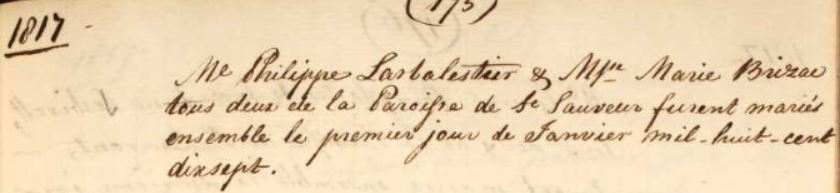 (173)
1817
Me Philippe Larbalestier & Mſse Marie Brizac
tous deux de la Paroiſse de St Sauveur furent mariés
ensemble le premier jour de Janvier mil-huit-cent
dixsept.